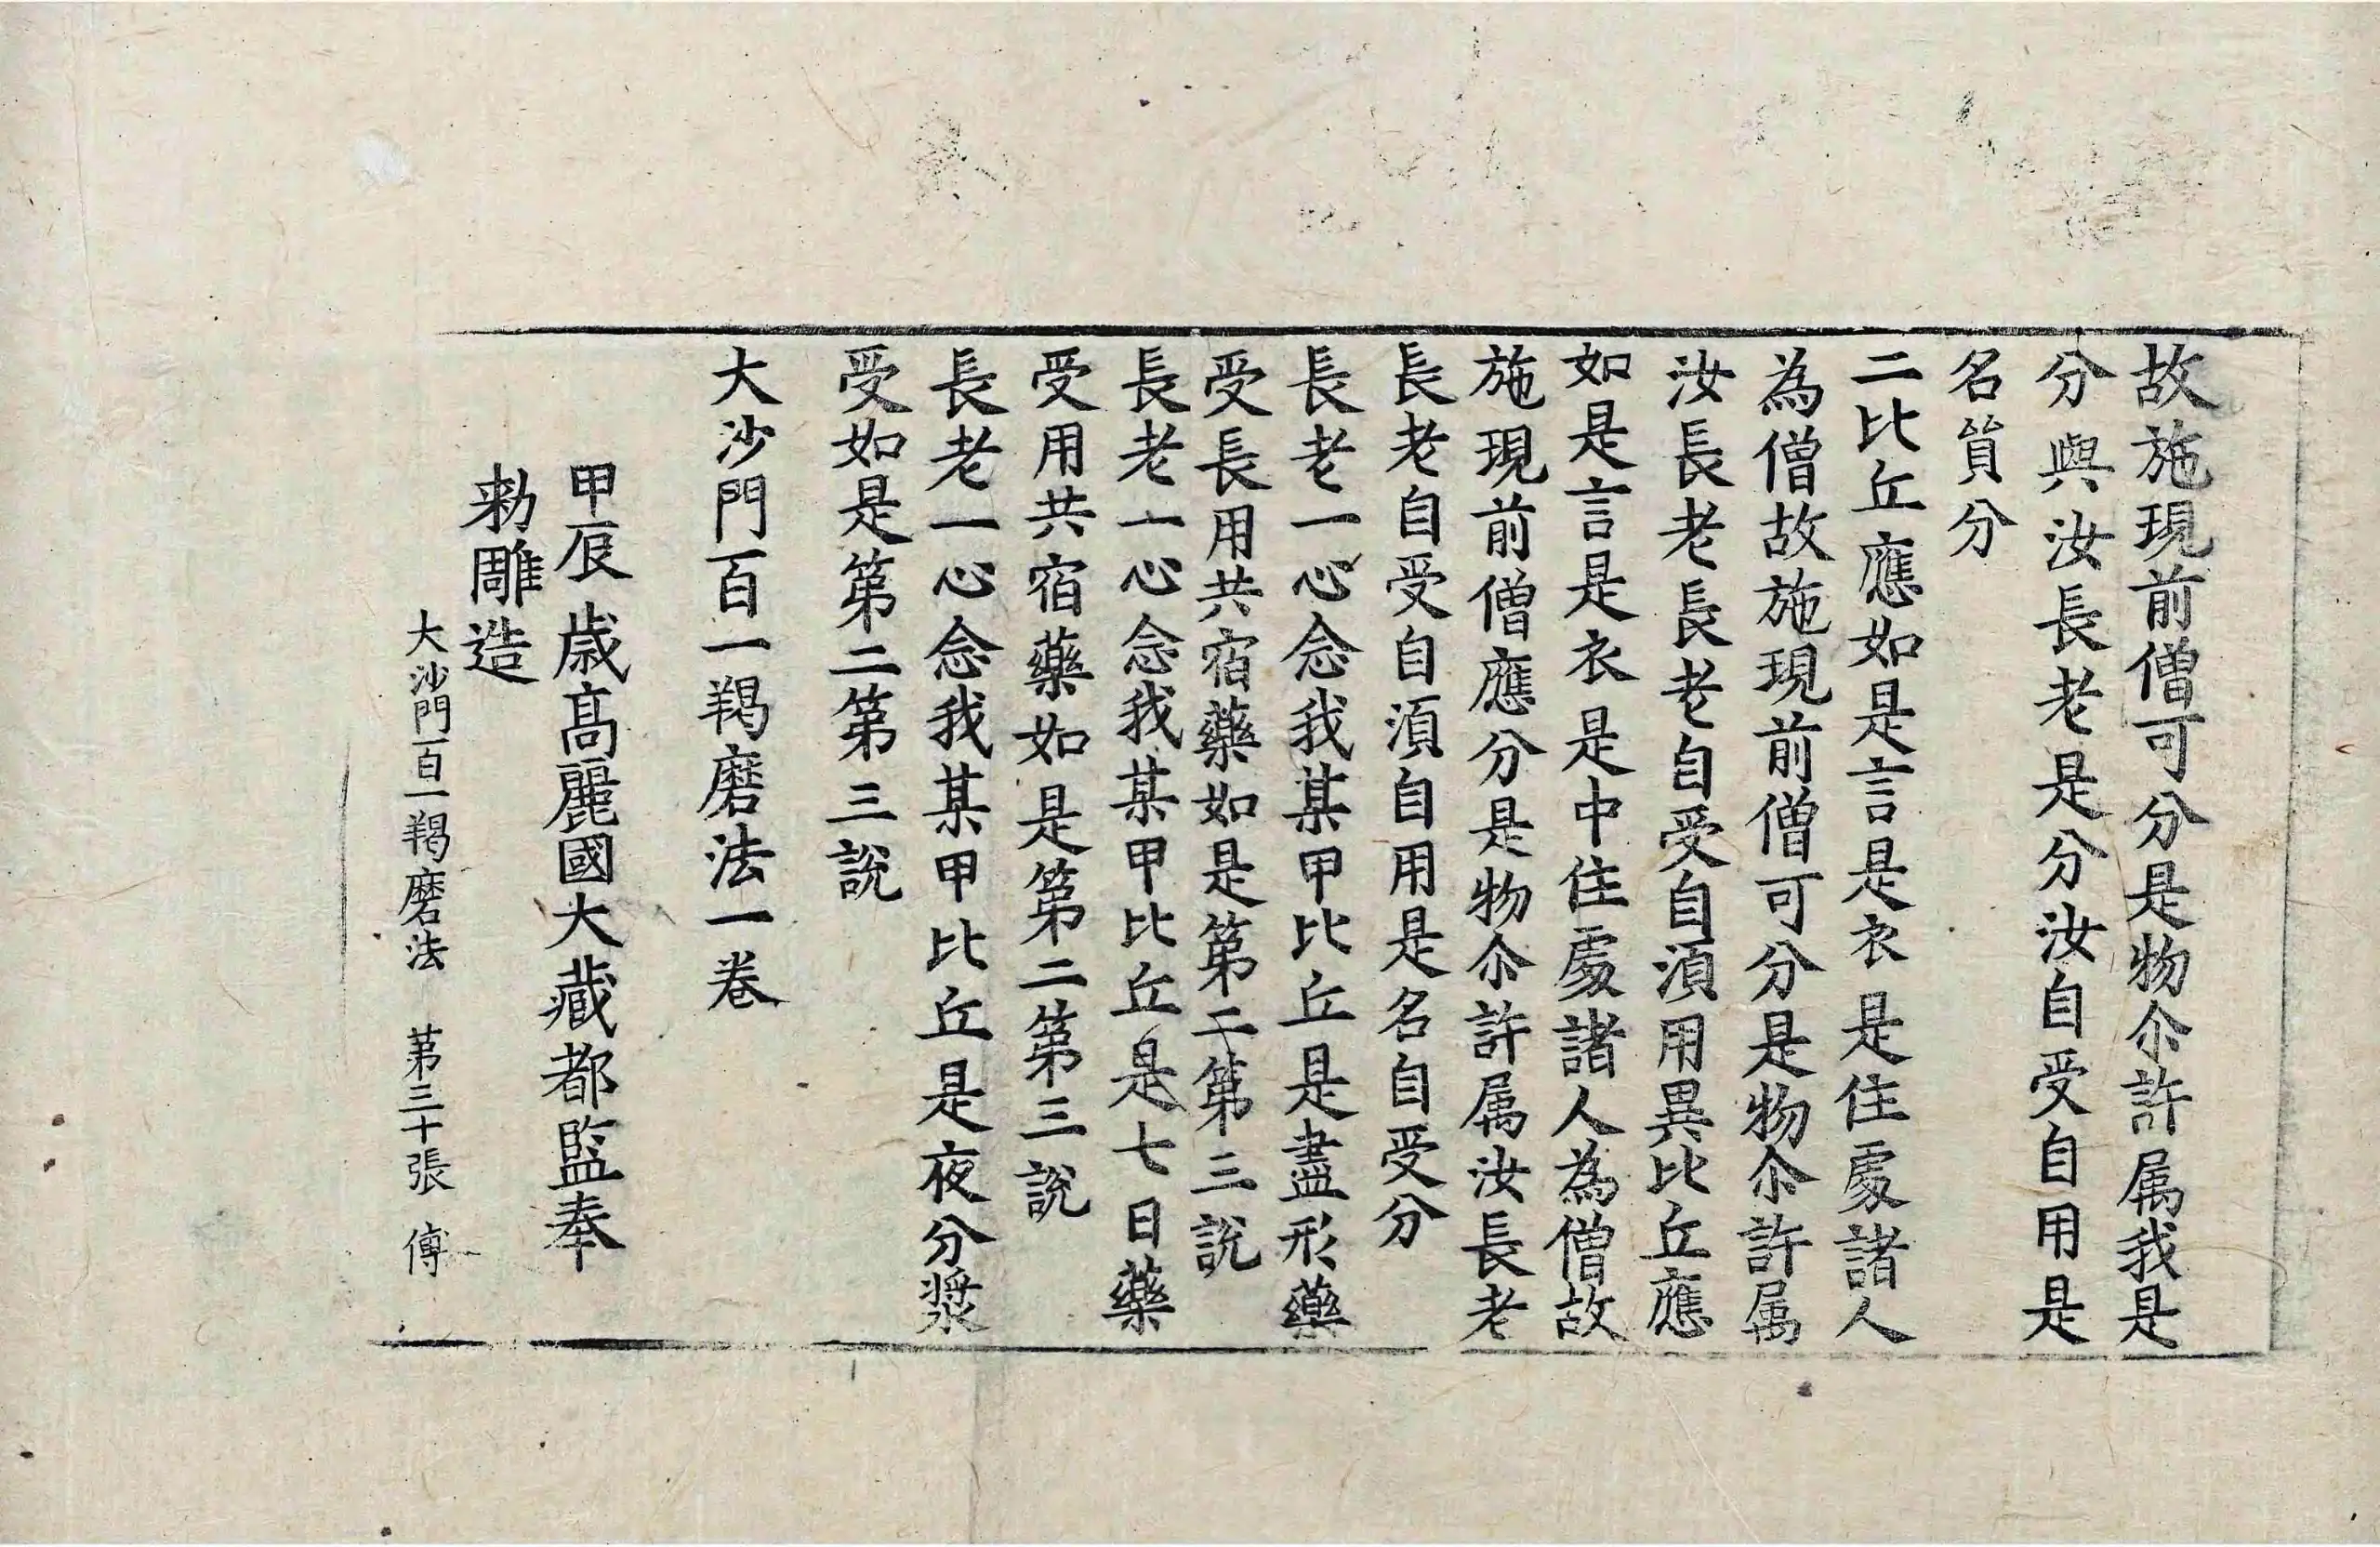 故施現前僧可分是物尒許属我是
分與汝長老是分汝自受自用是
名質分
二比丘應如是言是衣是住處諸人
為僧故施現前僧可分是物尒許属
汝長老長老自受自湏用異比丘應
如是言是衣是中住處諸人為僧故
施現前僧應分是物尒許属汝長老
長老自受自湏自用是名自受分
長老一心念我某甲比丘是盡形藥
受長用共宿藥如是第二第三說
長老一心念我某甲比丘是七日藥
受用共宿藥如是第二第三說
長老一心念我某甲比丘是夜分漿
受如是第二第三說
大沙門百一羯磨法一卷
甲辰歲髙麗國大藏都監奉
勑雕造
大沙門百一羯磨法 苐三十張 傅